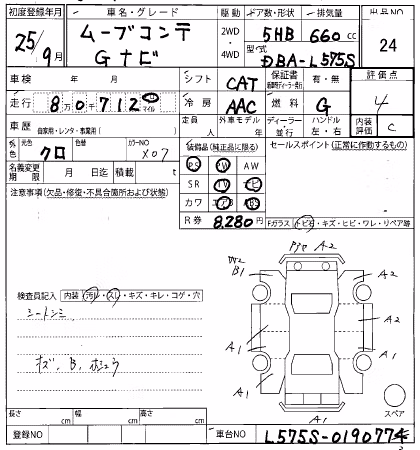 初度登録年月 車名・グレード 駆動 ドア数・形状 排気量 出品NO
25/9月 ムーブコンテ 2WD・4WD 5HB 660cc 24
Gナビ 型式 DBA-L575S
車検 年 月 シフト CAT 保証書 有・無 評価点
走行 8万0千712 マイル 冷房 AAC 燃料 G 4
車歴 自家用・レンタ・事業用( ) 定員 人 外車モデル 年 ディーラー 並行 ハンドル 左・右 内装評価 C
外色 元色 クロ 色替 カラーNO X07 装備品(純正品に限る) セールスポイント(正常に作動するもの)
名義変更期限 月 日迄 積載 t PS PW AW
注意事項(欠品・修復・不具合箇所および状態) SR TV ナビ
カワ エアB ABS
R券 8,280円 Fガラス トビ石・キズ・ヒビ・ワレ・リペア跡
A2
B1 A2
検査員記入 内装 汚レ・スレ・キズ・キレ・コゲ・穴
シートシミ
A2
A1 A1
キズ、B、ホシュウ
A1 A1
スペア
A1
長さ cm 幅 cm 高さ cm
登録NO 車台NO L575S-0190774